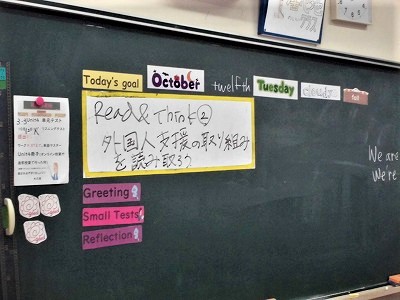 Today's goal
October
twelfth
Tuesday
cloudy
Read & Think②
外国人支援の取り組み
を読み取ろう
Greeting
Small Tests
Reflection
We are
We're